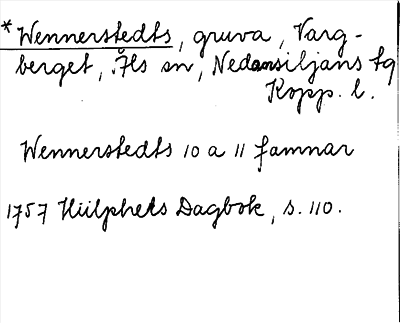 * Wennerstedts, gruva, Varg-
berget, Åls sn, Nedansiljans fg
Kopp. l.
Wennerstedts 10 a 11 famnar
1757 Hülphers Dagbok, s. 110.